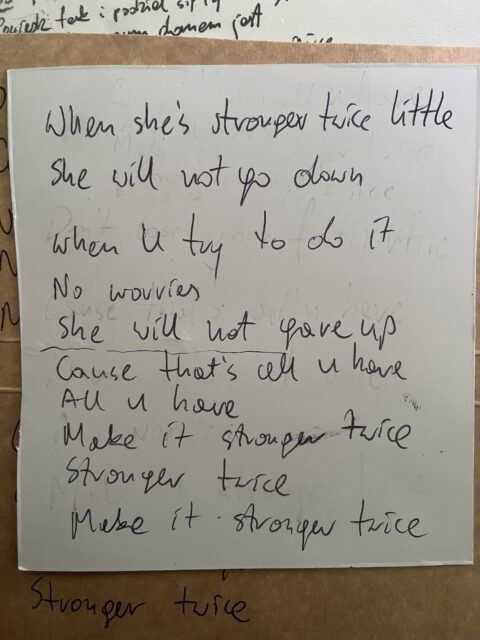 i podziel się
When she's stronger twice little
She will not go down
when U try to do it
No worries
She will not gave up
Cause that's all u have
All u have
Make it stronger twice
Stronger twice
Make it stronger twice
Stronger twice